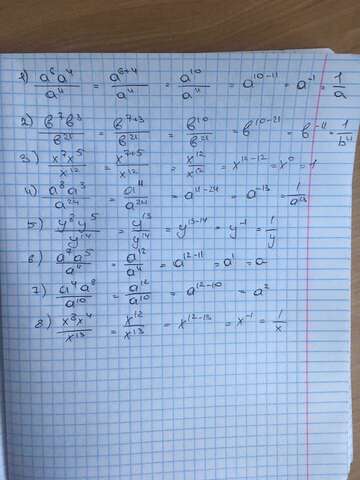 1) a⁶a⁴/a¹¹ = a⁶⁺⁴/a¹¹ = a¹⁰/a¹¹ = a¹⁰⁻¹¹ = a⁻¹ = 1/a
2) в⁷в³/в²¹ = в⁷⁺³/в²¹ = в¹⁰/в²¹ = в¹⁰⁻²¹ = в⁻¹¹ = 1/b¹¹
3) x⁷x⁵/x¹² = x⁷⁺⁵/x¹² = x¹²/x¹² = x¹²⁻¹² = x⁰ = 1
4) a⁸a³/a²⁴ = a¹¹/a²⁴ = a¹¹⁻²⁴ = a⁻¹³ = 1/a¹³
5) y⁸y⁵/y¹⁴ = y¹³/y¹⁴ = y¹³⁻¹⁴ = y⁻¹ = 1/y
6) a⁷a⁵/a¹¹ = a¹²/a¹¹ = a¹²⁻¹¹ = a¹ = a
7) a⁴a⁸/a¹⁰ = a¹²/a¹⁰ = a¹²⁻¹⁰ = a²
8) x⁸x⁴/x¹³ = x¹²/x¹³ = x¹²⁻¹³ = x⁻¹ = 1/x